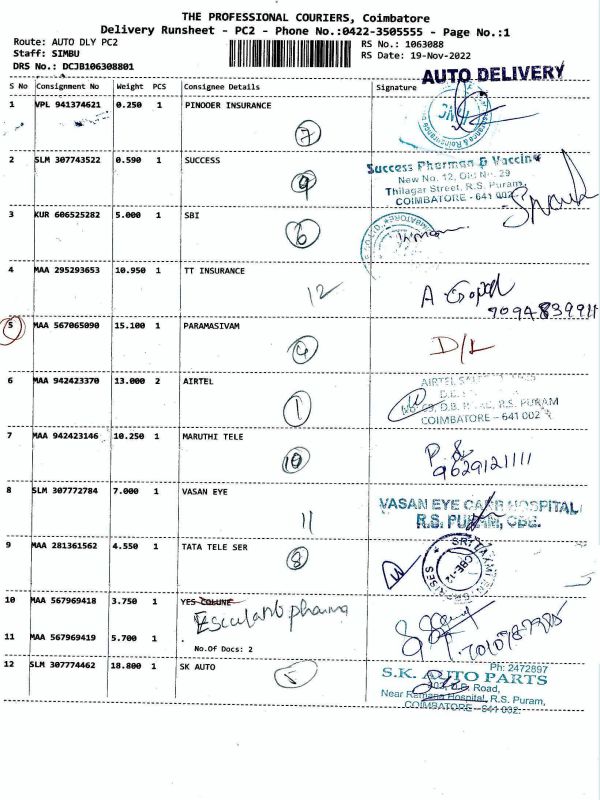 THE PROFESSIONAL COURIERS, Coimbatore
Delivery Runsheet - PC2 - Phone No.:0422-3505555 - Page No.:1
Route: AUTO DLY PC2
RS No.: 1063088
Staff: SIMBU
RS Date: 19-Nov-2022
DRS No.: DCJB106308801
AUTO DELIVERY
S No Consignment No Weight PCS Consignee Details Signature
1 VPL 941374621 0.250 1 PINOOER INSURANCE
7
2 SLM 307743522 0.590 1 SUCCESS
9
Success Pharman & Vaccine
New No. 12, Old No. 29
Thilagar Street, R.S. Puram,
COIMBATORE - 641 002
3 KUR 606525282 5.000 1 SBI
6
4 MAA 295293653 10.950 1 TT INSURANCE
12
A Gopal
9094839911
5 MAA 567065090 15.100 1 PARAMASIVAM
D/L
6 MAA 942423370 13.000 2 AIRTEL
1
AIRTEL
R.S. PURAM
COIMBATORE - 641 002
7 MAA 942423146 10.250 1 MARUTHI TELE
10
9629121111
8 SLM 307772784 7.000 1 VASAN EYE
11
VASAN EYE CARE HOSPITAL
R.S. PURAM, CBE.
9 MAA 281361562 4.550 1 TATA TELE SER
8
CBE-12
10 MAA 567969418 3.750 1 YES COLUNE
pharma
11 MAA 567969419 5.700 1
No.Of Docs: 2
12 SLM 307774462 18.800 1 SK AUTO
5
Ph: 2472897
S.K. AUTO PARTS
D.B. Road,
Near Ramana Hospital, R.S. Puram,
COIMBATORE - 641 002.